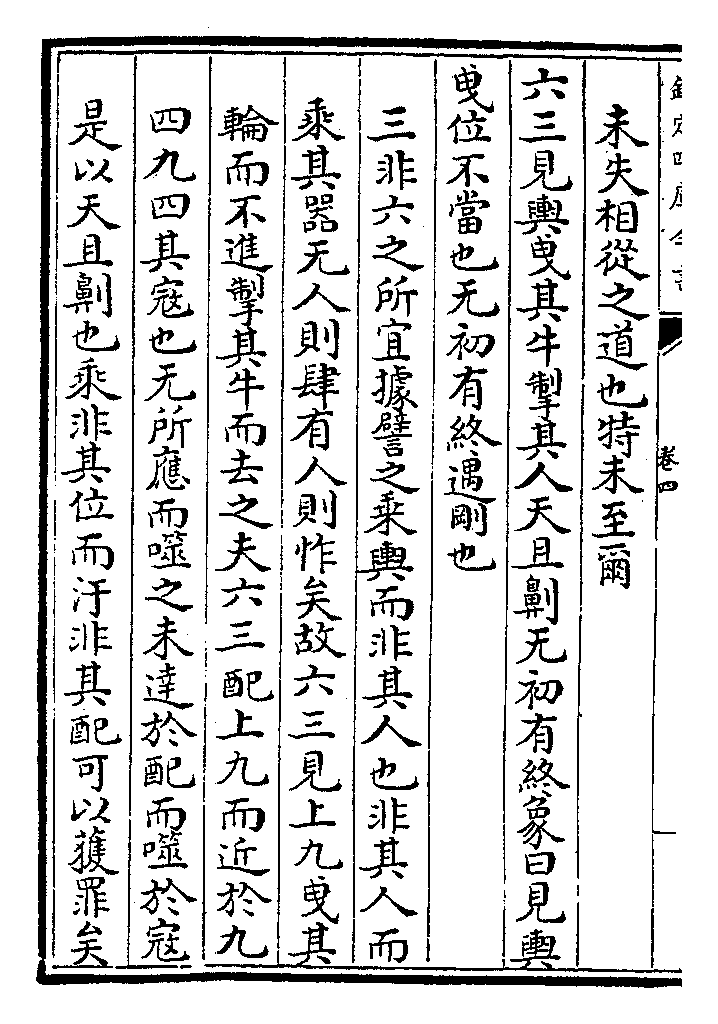 欽定四庫全書
卷四
未失相從之道也特未至爾
六三見輿曳其牛掣其人天且劓无初有終象曰見輿
曳位不當也无初有終遇剛也
三非六之所宜據譬之乘輿而非其人也非其人而
乘其器无人則肆有人則怍矣故六三見上九曳其
輪而不進掣其牛而去之夫六三配上九而近於九
四九四其寇也无所應而噬之未達於配而噬於寇
是以天且劓也乘非其位而汙非其配可以獲罪矣